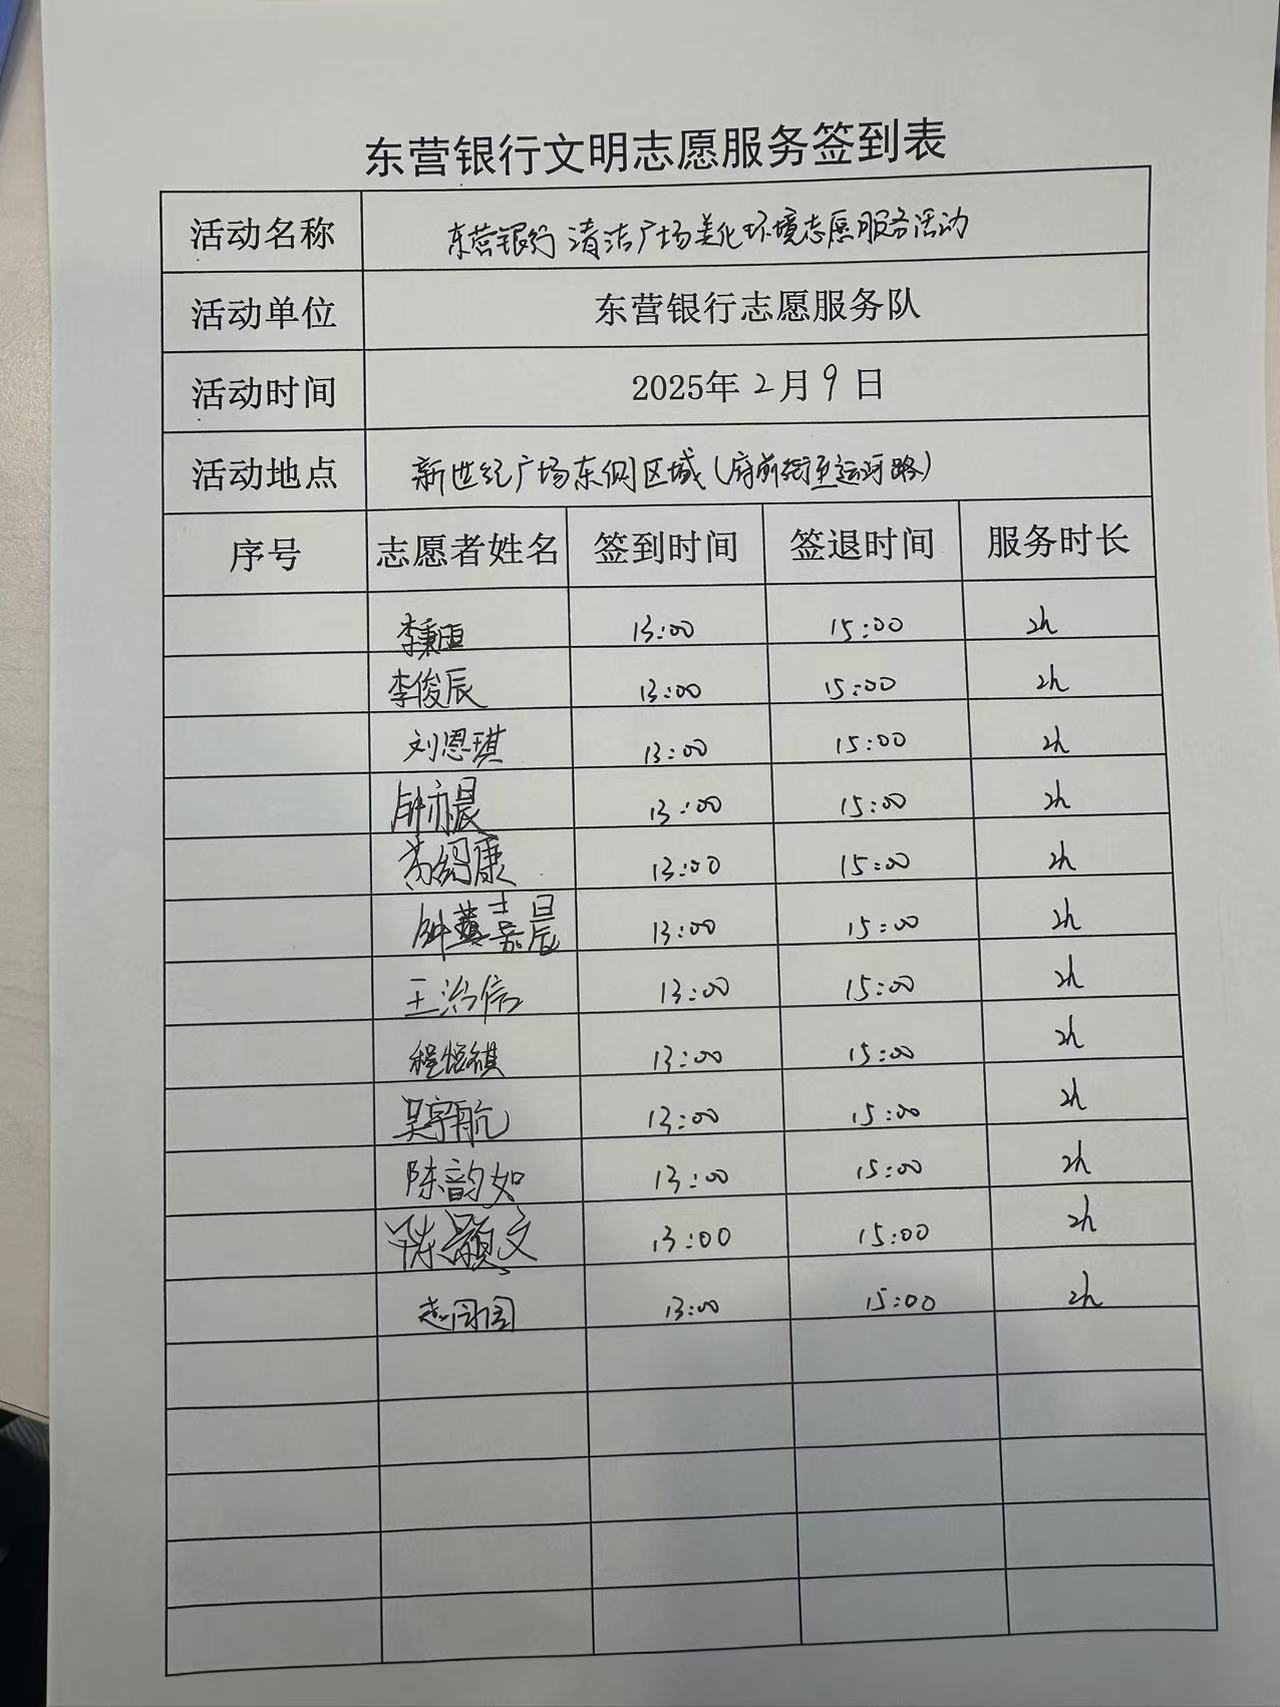 东营银行文明志愿服务签到表
活动名称 东营银行清洁广场美化环境志愿服务活动
活动单位 东营银行志愿服务队
活动时间 2025年2月9日
活动地点 新世纪广场东侧区域(府前街至运河路)
序号 志愿者姓名 签到时间 签退时间 服务时长
李秉 13:00 15:00 2h
李俊辰 13:00 15:00 2h
刘恩琪 13:00 15:00 2h
钟亦晨 13:00 15:00 2h
绍康 13:00 15:00 2h
钟嘉晨 13:00 15:00 2h
王治信 13:00 15:00 2h
程恒祺 13:00 15:00 2h
吴宇航 13:00 15:00 2h
陈韵如 13:00 15:00 2h
陈颢文 13:00 15:00 2h
13:00 15:00 2h